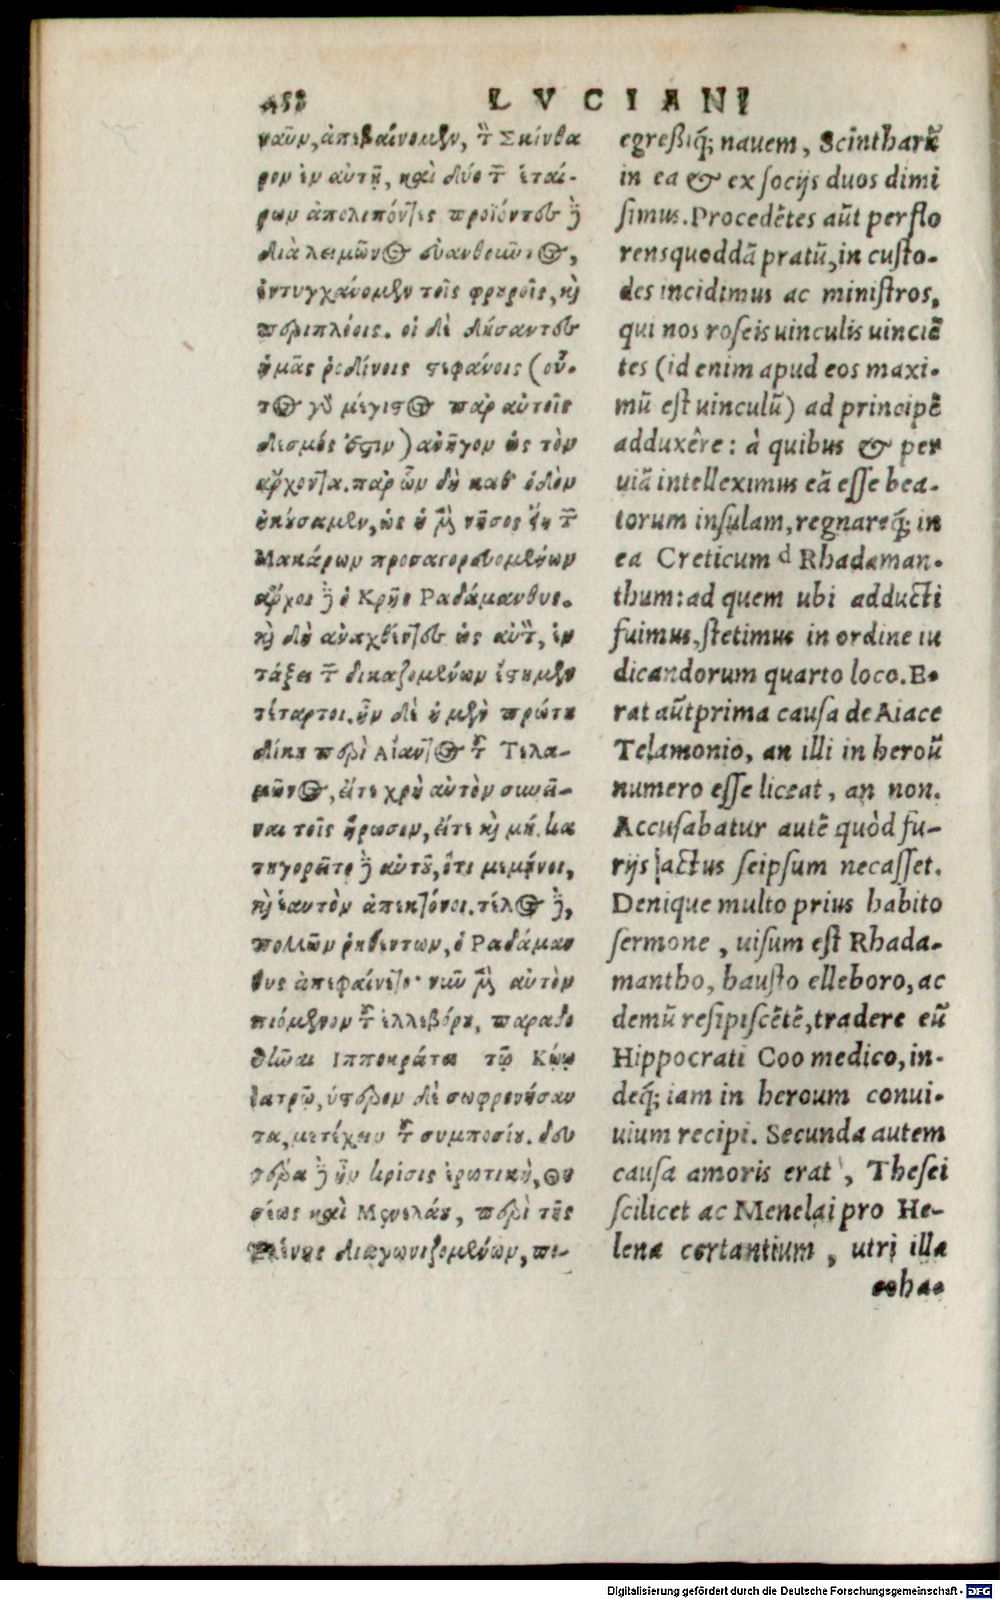 458 LVCIANI
ναῦν, ἀπεβαίνομεν, τὸν Σκίνθα
ρον ἐν αὐτῇ, καὶ δύο τῶν ἑταί-
ρων ἀπολιπόντες προϊόντες δὲ
διὰ λειμῶνος εὐανθοῦς,
ἐντυγχάνομεν τοῖς φρουροῖς, καὶ
περιπλόοις. οἱ δὲ δήσαντες
ἡμᾶς ῥοδίνοις στεφάνοις (οὗ-
τος γὰρ μέγιστος παρ αὐτοῖς
δεσμός ἐστιν) ἀνῆγον ὡς τὸν
ἄρχοντα. παρ ὧν δὴ καθ ὁδὸν
ἠκούσαμεν, ὡς ἡ μὲν νῆσος εἴη τῶν
Μακάρων προσαγορευομένων
ἄρχοι δὲ ὁ Κρὴς Ραδάμανθυς.
καὶ δὴ ἀναχθέντες ὡς αὐτὸν, ἐν
τάξει τῶν δικαζομένων ἔστημεν
τέταρτοι. ἦν δὲ ἡ μὲν πρώτη
δίκη περὶ Αἴαντος τοῦ Τελα-
μῶνος, εἴτε χρὴ αὐτὸν συνεῖ-
ναι τοῖς ἥρωσιν, εἴτε καὶ μή. κα
τηγορεῖτο δὲ αὐτοῦ, ὅτι μεμήνοι,
καὶ ἑαυτὸν ἀπεκτόνοι. τέλος δὲ,
πολλῶν ῥηθέντων, ὁ Ραδάμαν
θυς ἀπεφαίνετο· νῦν μὲν αὐτὸν
πιόμενον τοῦ ἑλλεβόρου, παραδο
θῆναι Ιπποκράτει τῷ Κώῳ
ἰατρῷ, ὕστερον δὲ σωφρονήσαν
τα, μετέχειν τοῦ συμποσίου. δευ
τέρα δὲ ἦν κρίσις ἐρωτικὴ, Θη
σέως καὶ Μενελάου, περὶ τῆς
Ἑλένης διαγωνιζομένων, πο-
egreßiq́; nauem, Scintharũ
in ea & ex socijs duos dimi
simus. Procedẽtes aũt per flo
rens quoddã pratũ, in custo-
des incidimus ac ministros,
qui nos roseis uinculis uinciẽ
tes (id enim apud eos maxi-
mũ est uinculũ) ad principẽ
adduxêre: à quibus & per
uiã intelleximus eã esse bea-
torum insulam, regnareq́; in
ea Creticum d Rhadaman-
thum: ad quem ubi adducti
fuimus, stetimus in ordine iu
dicandorum quarto loco. E-
rat aũt prima causa de Aiace
Telamonio, an illi in heroũ
numero esse liceat, an non.
Accusabatur autẽ quòd fu-
rijs actus seipsum necasset.
Denique multo prius habito
sermone, uisum est Rhada-
mantho, hausto elleboro, ac
demũ resipiscẽtẽ, tradere eũ
Hippocrati Coo medico, in-
deq́; iam in heroum conui-
uium recipi. Secunda autem
causa amoris erat, Thesei
scilicet ac Menelai pro He-
lena certantium, utri illa
coha-
Digitalisierung gefördert durch die Deutsche Forschungsgemeinschaft - DFG